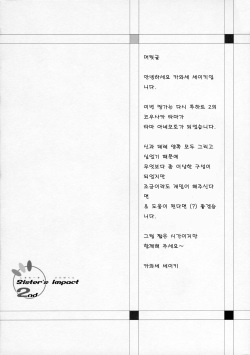 머릿글
안녕하세요 카와세 세이키입
니다.
이번 정가는 다시 투하트 2의
코우사카 타마가
타마 아네모토가 되었습니다.
신과 체례 양쪽 모두 그리고
싶었기 때문에
무엇보다 좀 이상한 구성이
되었지만
조금이라도 게임이 해주시다
면
& 도움이 된다면 (?) 좋겠습
니다.
그럼 짧은 시간이지만
함께해 주세요~
카와세 세이키
Sister's Impact
2nd